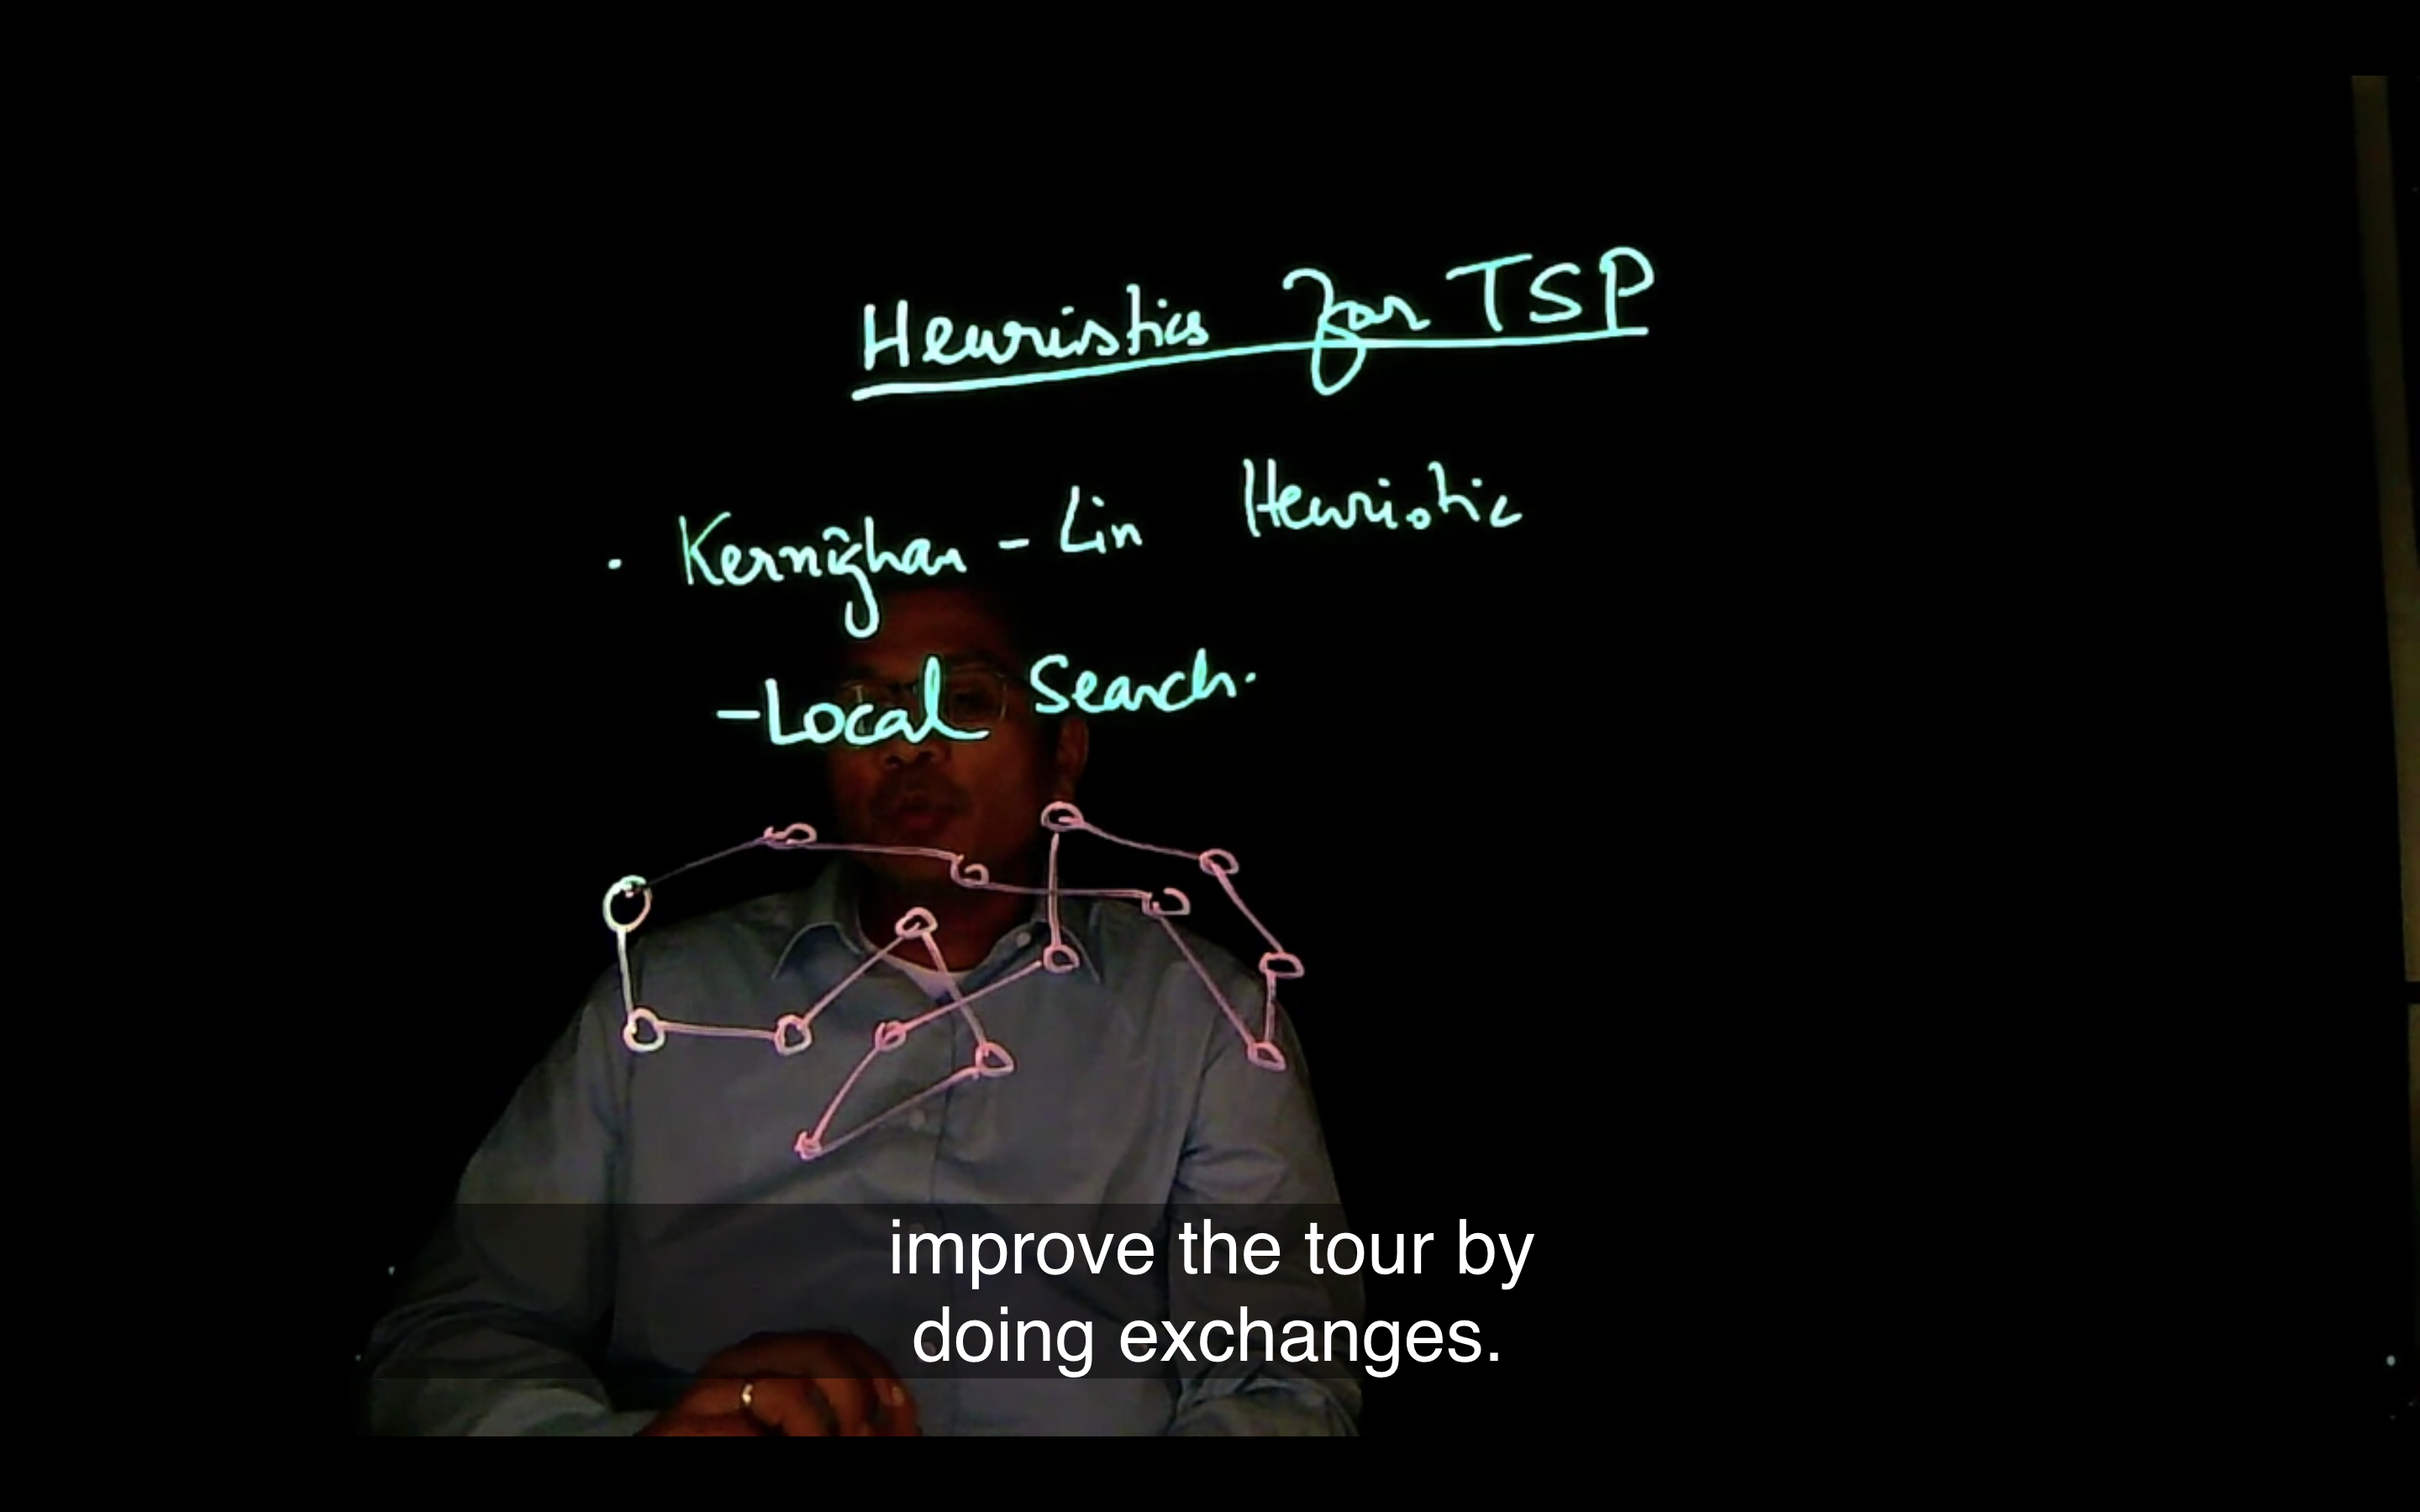 Heuristics for TSP
· Kernighan - Lin Heuristic
- Local Search.
improve the tour by
doing exchanges.